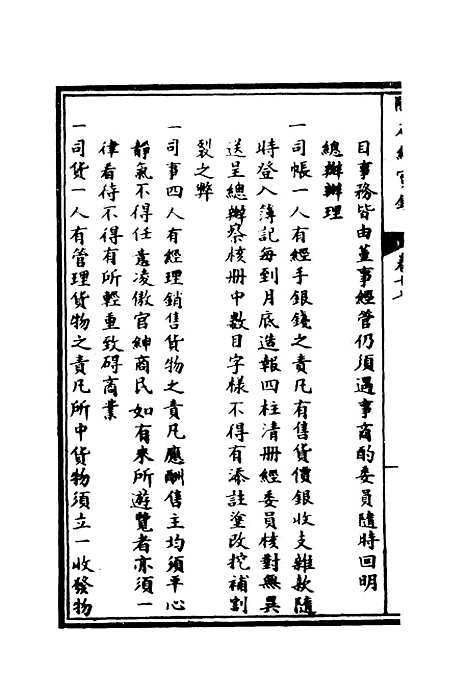 目事務皆由董事經管仍須遇事商酌委員隨時回明
總辦辦理
一司帳一人有經手銀錢之責凡有售貨價銀收支雜款隨
時登入簿記每到月底造報四柱清册經委員核對無異
送呈總辦察核册中數目字樣不得有添註塗改挖補割
裂之弊
一司事四人有經理銷售貨物之責凡應酬售主均須平心
靜氣不得任意凌傲官紳商民如有來所遊覽者亦須一
律看待不得有所輕重致碍商業
一司貨一人有管理貨物之責凡所中貨物須立一收發物